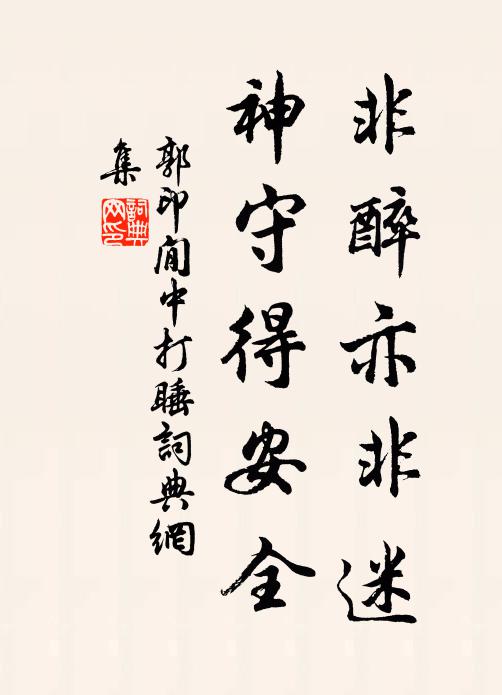 非醉亦非迷
神守得安全
郭印閒中打睡詞典網
集
詞典
网印